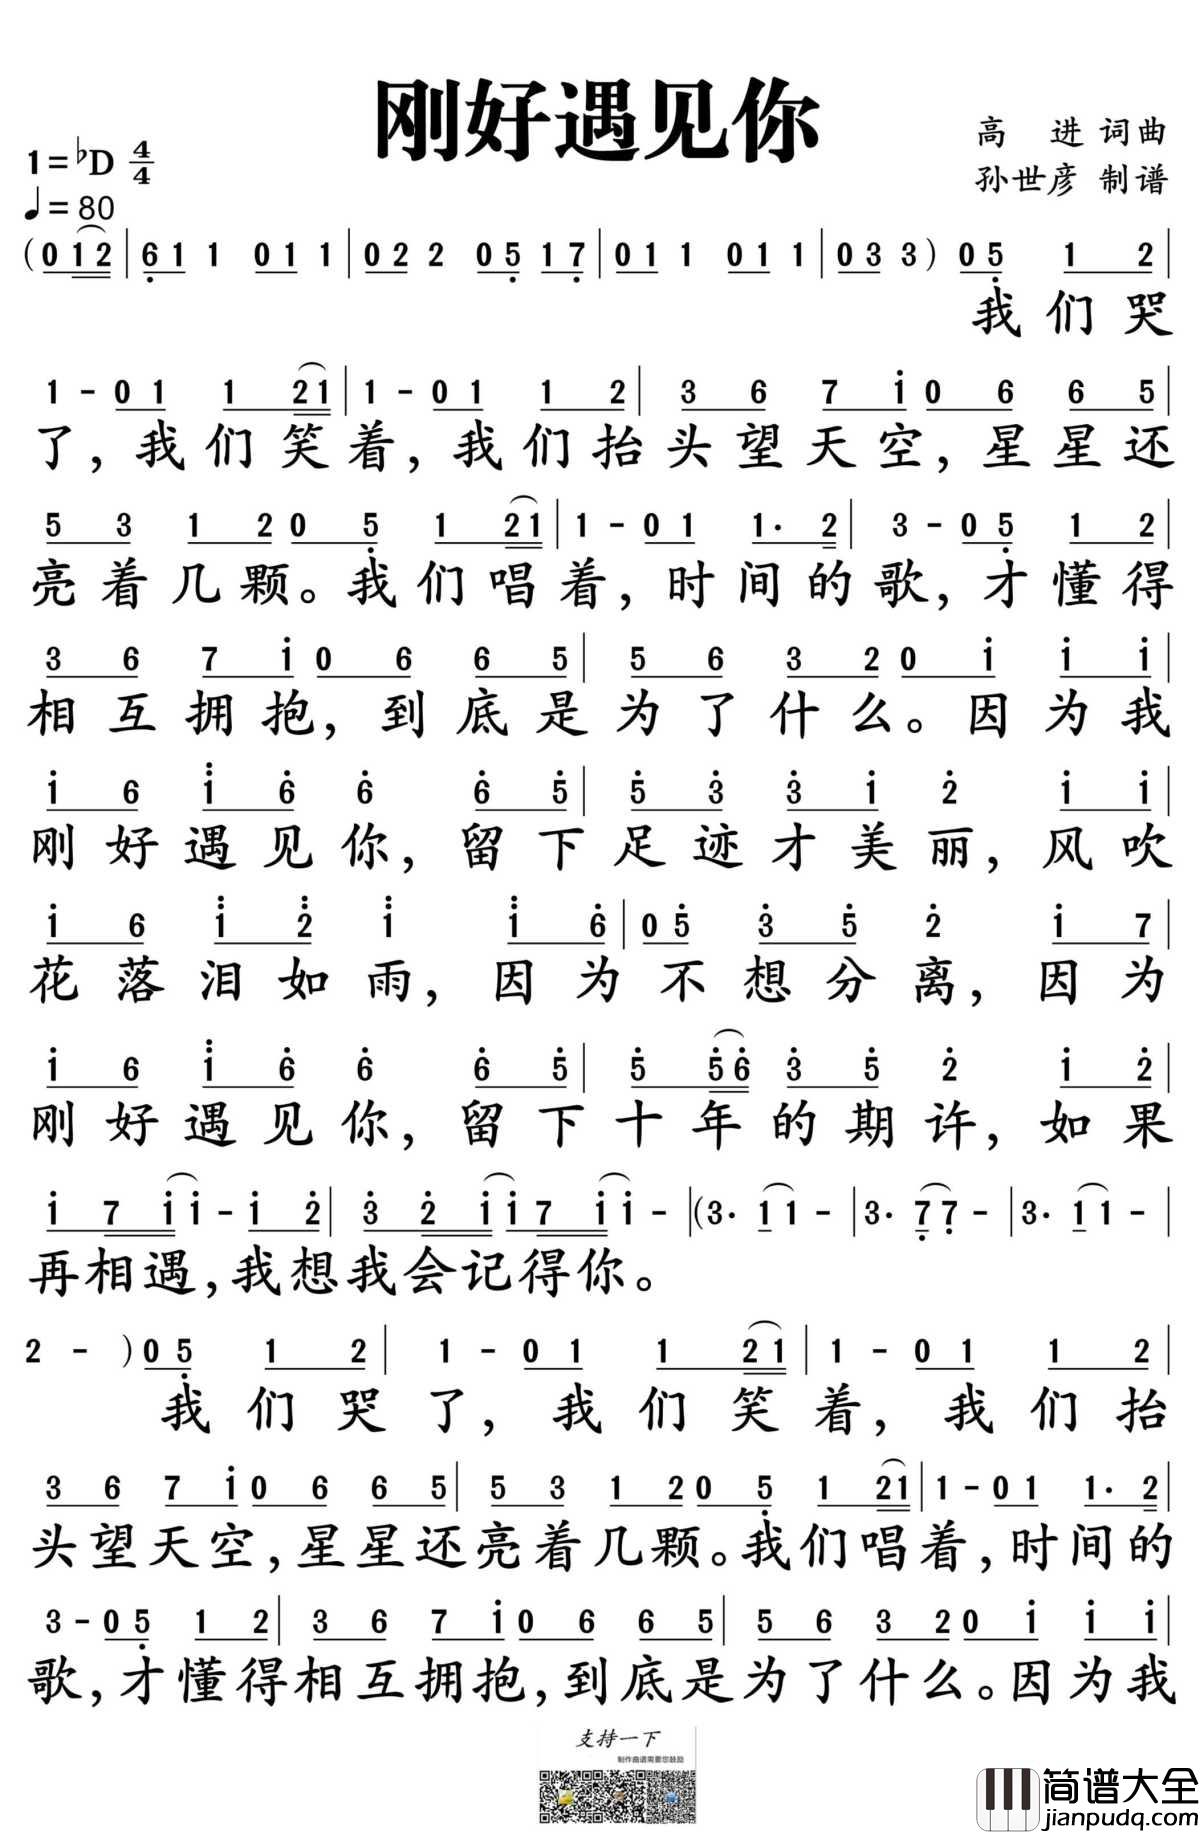 刚好遇见你
高 进 词曲
孙世彦 制谱
1=♭D 4/4
♩=80
(0 1 2 | 6̣ 1 1 0 1 1 | 0 2 2 0 5̣ 1 7̣ | 0 1 1 0 1 1 | 0 3 3 ) 0 5̣ 1 2 |
我们哭
1 - 0 1 1 2 1 | 1 - 0 1 1 2 | 3 6 7 1̇ 0 6 6 5 |
了,我们笑着,我们抬头望天空,星星还
5 3 1 2 0 5̣ 1 2 1 | 1 - 0 1 1· 2 | 3 - 0 5̣ 1 2 |
亮着几颗。我们唱着,时间的歌,才懂得
3 6 7 1̇ 0 6 6 5 | 5 6 3 2 0 1̇ 1̇ 1̇ |
相互拥抱,到底是为了什么。因为我
1̇ 6 1̈ 6̇ 6̇ 6̇ 5̇ | 5̇ 3̇ 3̇ 1̇ 2̇ 1̇ 1̇ |
刚好遇见你,留下足迹才美丽,风吹
1̇ 6 1̈ 2̈ 1̈ 1̈ 6̇ | 0 5̇ 3̇ 5̇ 2̇ 1̇ 7 |
花落泪如雨,因为不想分离,因为
1̇ 6 1̈ 6̇ 6̇ 6̇ 5̇ | 5̇ 5̇ 6̇ 3̇ 5̇ 2̇ 1̇ 2̇ |
刚好遇见你,留下十年的期许,如果
1̇ 7 1̇ 1̇ - 1̇ 2̇ | 3̇ 2̇ 1̇ 1̇ 7 1̇ 1̇ - | (3· 1 1 - | 3· 7̣ 7̣ - | 3· 1 1 - |
再相遇,我想我会记得你。
2 - ) 0 5̣ 1 2 | 1 - 0 1 1 2 1 | 1 - 0 1 1 2 |
我们哭了,我们笑着,我们抬
3 6 7 1̇ 0 6 6 5 | 5 3 1 2 0 5̣ 1 2 1 | 1 - 0 1 1· 2 |
头望天空,星星还亮着几颗。我们唱着,时间的
3 - 0 5̣ 1 2 | 3 6 7 1̇ 0 6 6 5 | 5 6 3 2 0 1̇ 1̇ 1̇ |
歌,才懂得相互拥抱,到底是为了什么。因为我
支持一下
制作曲谱需要您鼓励
简谱大全
jianpudq.com